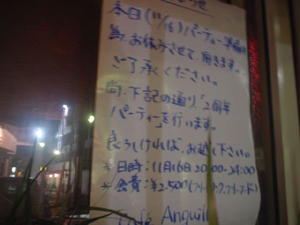 本日(11/16)パーティー準備の
為、お休みさせて頂きます。
ご了承ください。
尚、下記の通り、2周年
パーティーを行います。
良ろしければ、お越し下さい。
*日時：11月16日 20:00-24:00
*会費：¥2,500(フリードリンク,フリーフード)
Café Anguill